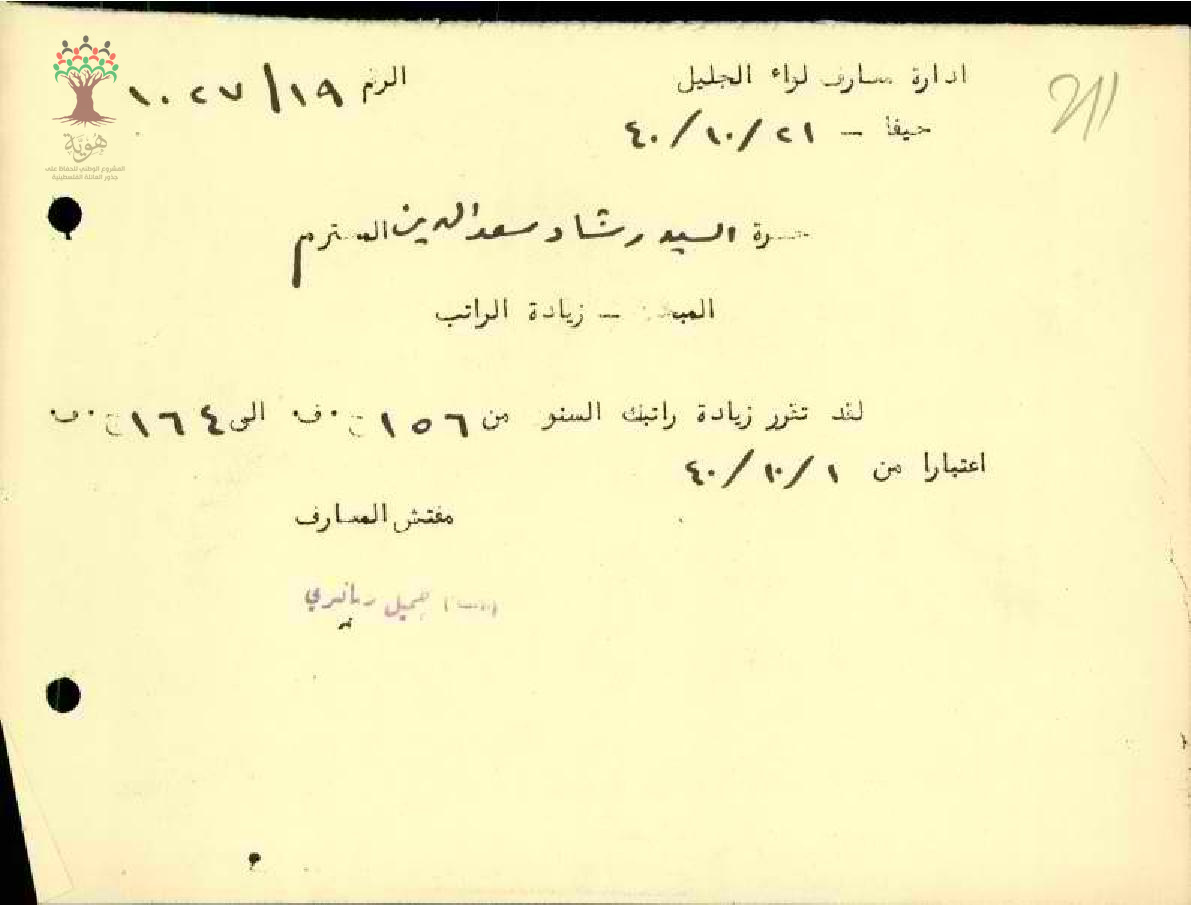 ادارة معارف لواء الجليل
الرقم ١٠٢٧/١٩
حيفا – ٤٠/١٠/٢١
هُويَّة
المشروع الوطني للحفاظ على
جذور العائلة الفلسطينية
حضرة السيد رشاد سعد الدين المحترم
المبحث – زيادة الراتب
لقد تقرر زيادة راتبك السنوي من ١٥٦ ج.ف. الى ١٦٤ ج.ف.
اعتبارا من ٤٠/١٠/١
مفتش المعارف
جميل